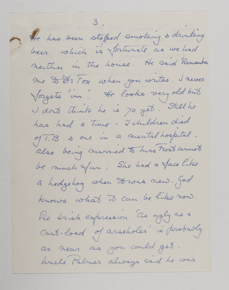 3.
He has been stopped smoking & drinking
beer which is fortunate as we had
neither in the house. He said Remember
me to Dr Fox when you write, I never
forgets 'im'. He looks very old but
I don't think he is 70 yet. Still he
has had a time - 2 children died
of T.B. & one in a mental hospital.
also being married to Mrs Frost cannot
be much fun. She had a face like
a hedgehog when new. God
knows what it can be like now
The Irish expression 'as ugly as a
cart-load of arseholes' is probably
as near as you could get.
Uncle Palmer always said he was